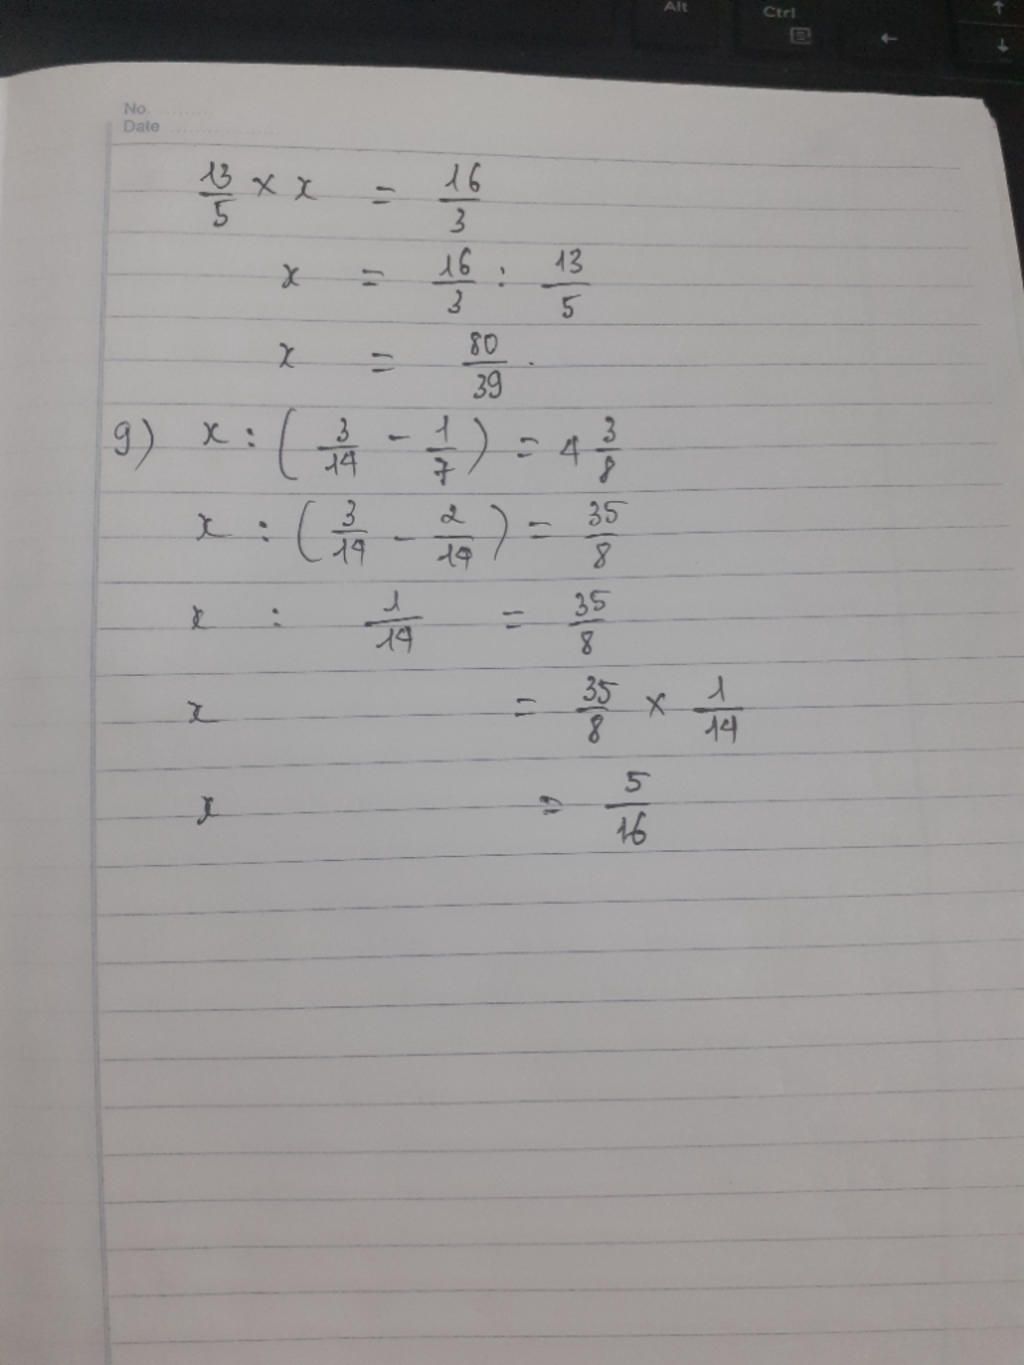 Alt Ctrl
No. ..........
Date ....................
13/5 × x = 16/3
x = 16/3 : 13/5
x = 80/39.
g) x : (3/14 - 1/7) = 4 3/8
x : (3/14 - 2/14) = 35/8
x : 1/14 = 35/8
x = 35/8 × 1/14
x = 5/16